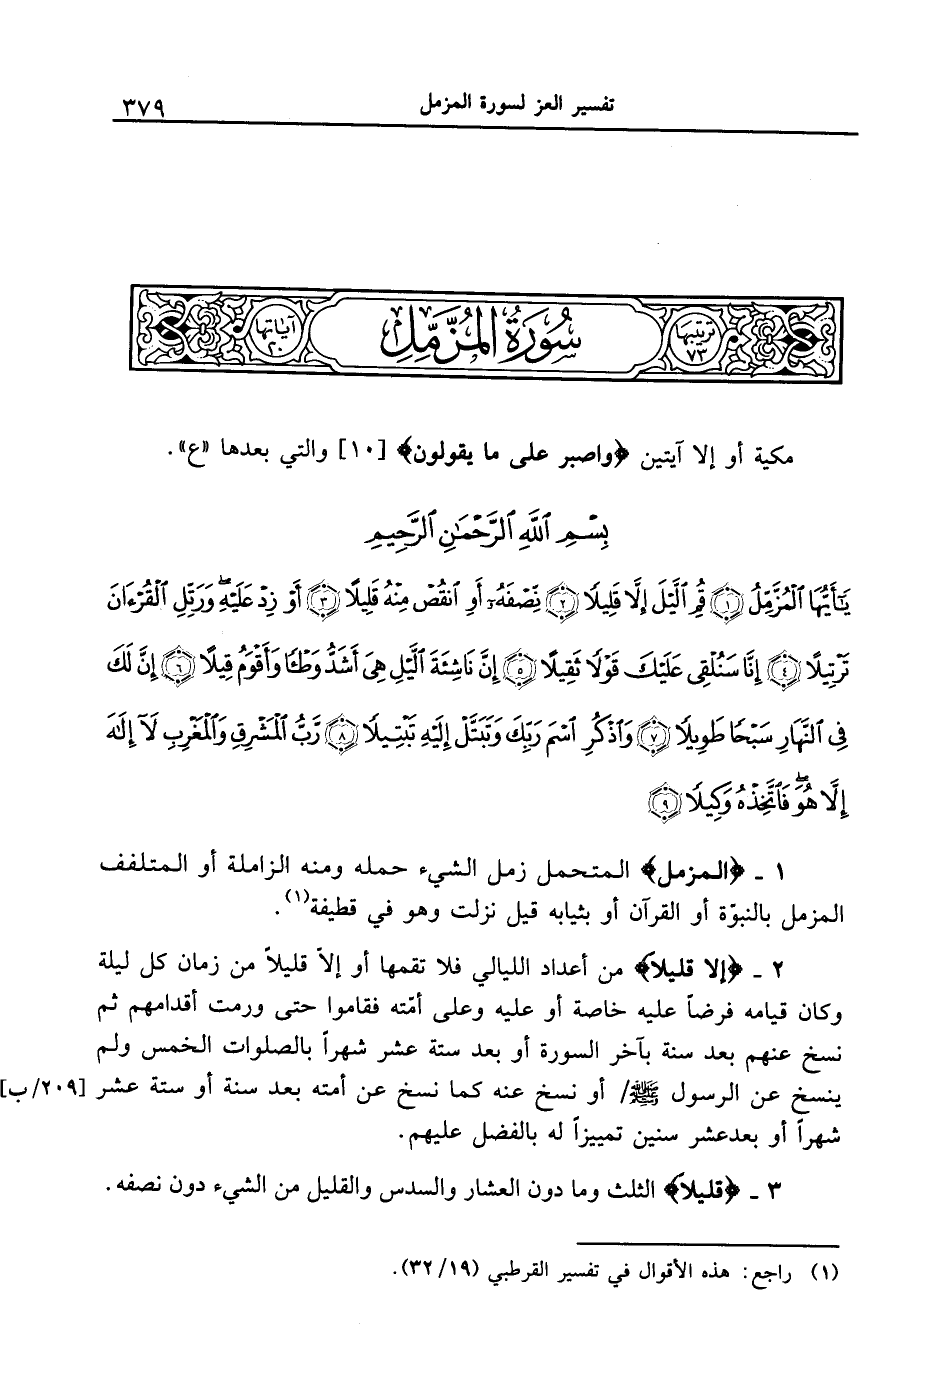 تفسير العز لسورة المزمل ٣٧٩
ترتيبها ٧٣ سُورَةُ المُزَّمِّل آياتها ٢٠
مكية أو إلا آيتين ﴿واصبر على ما يقولون﴾ [١٠] والتي بعدها «ع».
بِسْمِ ٱللَّهِ ٱلرَّحْمَٰنِ ٱلرَّحِيمِ
يَٰٓأَيُّهَا ٱلْمُزَّمِّلُ ﴿١﴾ قُمِ ٱلَّيْلَ إِلَّا قَلِيلًا ﴿٢﴾ نِّصْفَهُۥٓ أَوِ ٱنقُصْ مِنْهُ قَلِيلًا ﴿٣﴾ أَوْ زِدْ عَلَيْهِ وَرَتِّلِ ٱلْقُرْءَانَ
تَرْتِيلًا ﴿٤﴾ إِنَّا سَنُلْقِى عَلَيْكَ قَوْلًا ثَقِيلًا ﴿٥﴾ إِنَّ نَاشِئَةَ ٱلَّيْلِ هِىَ أَشَدُّ وَطْـًٔا وَأَقْوَمُ قِيلًا ﴿٦﴾ إِنَّ لَكَ
فِى ٱلنَّهَارِ سَبْحًا طَوِيلًا ﴿٧﴾ وَٱذْكُرِ ٱسْمَ رَبِّكَ وَتَبَتَّلْ إِلَيْهِ تَبْتِيلًا ﴿٨﴾ رَّبُّ ٱلْمَشْرِقِ وَٱلْمَغْرِبِ لَآ إِلَٰهَ
إِلَّا هُوَ فَٱتَّخِذْهُ وَكِيلًا ﴿٩﴾
١ ـ ﴿المزمل﴾ المتحمل زمل الشيء حمله ومنه الزاملة أو المتلفف
المزمل بالنبوّة أو القرآن أو بثيابه قيل نزلت وهو في قطيفة(١).
٢ ـ ﴿إلا قليلاً﴾ من أعداد الليالي فلا تقمها أو إلاّ قليلاً من زمان كل ليلة
وكان قيامه فرضاً عليه خاصة أو عليه وعلى أمّته فقاموا حتى ورمت أقدامهم ثم
نسخ عنهم بعد سنة بآخر السورة أو بعد ستة عشر شهراً بالصلوات الخمس ولم
ينسخ عن الرسول ﷺ/ أو نسخ عنه كما نسخ عن أمته بعد سنة أو ستة عشر [٢٠٩/ب]
شهراً أو بعدعشر سنين تمييزاً له بالفضل عليهم.
٣ ـ ﴿قليلاً﴾ الثلث وما دون العشار والسدس والقليل من الشيء دون نصفه.
(١) راجع: هذه الأقوال في تفسير القرطبي (١٩/٣٢).